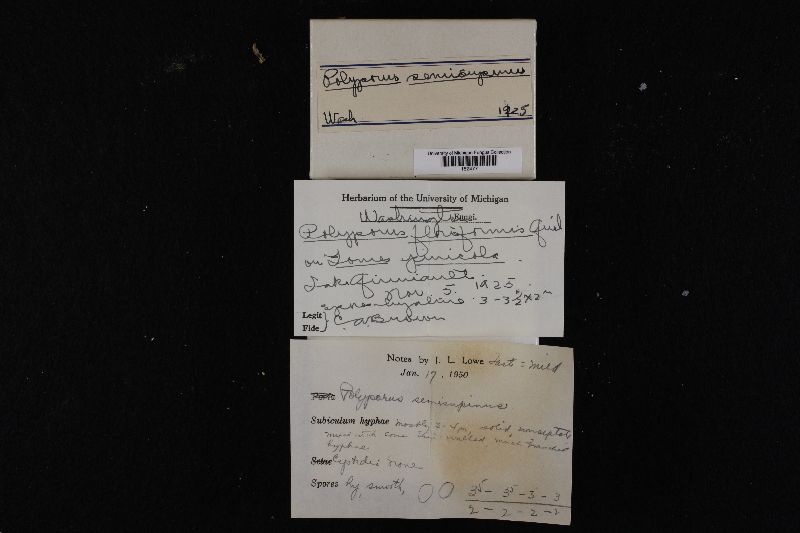 Polyporus semisupinus
Wash 1925
University of Michigan Fungus Collection
Herbarium of the University of Michigan
Washington Fungi.
Polyporus floriformis Quél
on Fomes pinicola.
Lake Quiniault
Nov. 5. 1925
spores hyaline 3-3½ x 2
Legit
Fide
Notes by J. L. Lowe taste = mild
Jan. 17, 1950
Polyporus semisupinus
Subiculum hyphae mostly 3-4µ, solid nonseptate
mixed with some thin walled, much branched
hyphae.
Cystidia none
Spores hy, smooth, 3⁵ - 3⁵ - 3 - 3
2 - 2 - 2 - 2